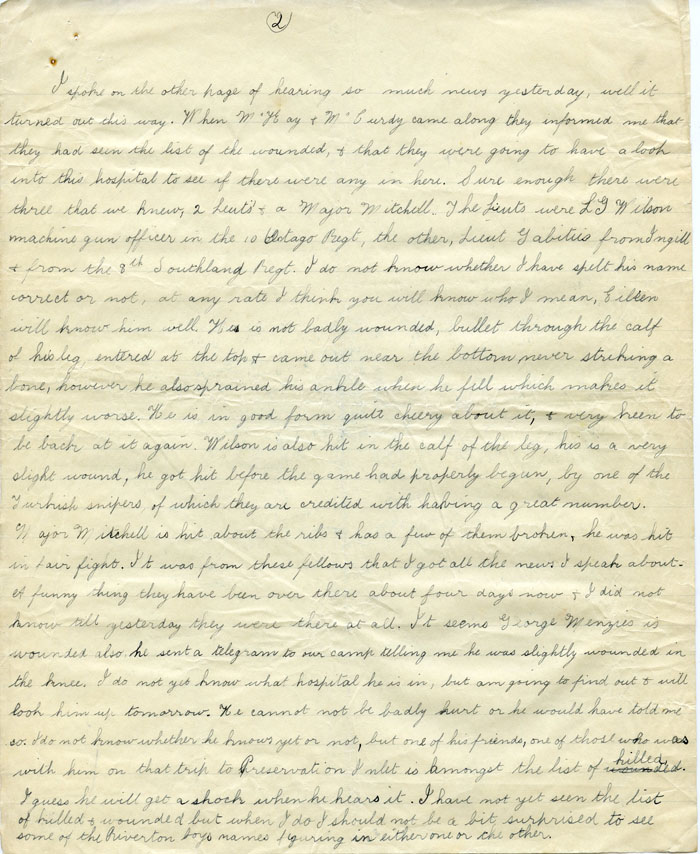 (2)
I spoke on the other page of hearing so much news yesterday, well it
turned out this way. When McKay & McCurdy came along they informed me that
they had seen the list of the wounded, & that they were going to have a look
into this hospital to see if there were any in here. Sure enough there were
three that we knew, 2 Leuts & a Major Mitchell. The Lieuts were L G Wilson
machine gun officer in the 10 Otago Regt, the other, Lieut Gabities from Ingill
& from the 8th Southland Regt. I do not know whether I have spelt his name
correct or not, at any rate I think you will know who I mean, Eileen
will know him well. He is not badly wounded, bullet through the calf
of his leg, entered at the top & came out near the bottom never striking a
bone, however he also sprained his ankle when he fell which makes it
slightly worse. He is in good form quite cheery about it, & very keen to
be back at it again. Wilson is also hit in the calf of the leg, his is a very
slight wound, he got hit before the game had properly begun, by one of the
Turkish snipers, of which they are credited with having a great number.
Major Mitchell is hit about the ribs & has a few of them broken, he was hit
in fair fight. It was from these fellows that I got all the news I speak about.
A funny thing they have been over there about four days now & I did not
know till yesterday they were there at all. It seems George Menzies is
wounded also he sent a telegram to our camp telling me he was slightly wounded in
the knee. I do not yet know what hospital he is in, but am going to find out & will
look him up tomorrow. He cannot not be badly hurt or he would have told me
so. I do not know whether he knows yet or not, but one of his friends, one of those who was
with him on that trip to Preservation Inlet is amongst the list of wounded killed.
I guess he will get a shock when he hears it. I have not yet seen the list
of killed & wounded but when I do I should not be a bit surprised to see
some of the Riverton boys names figuring in either one or the other.